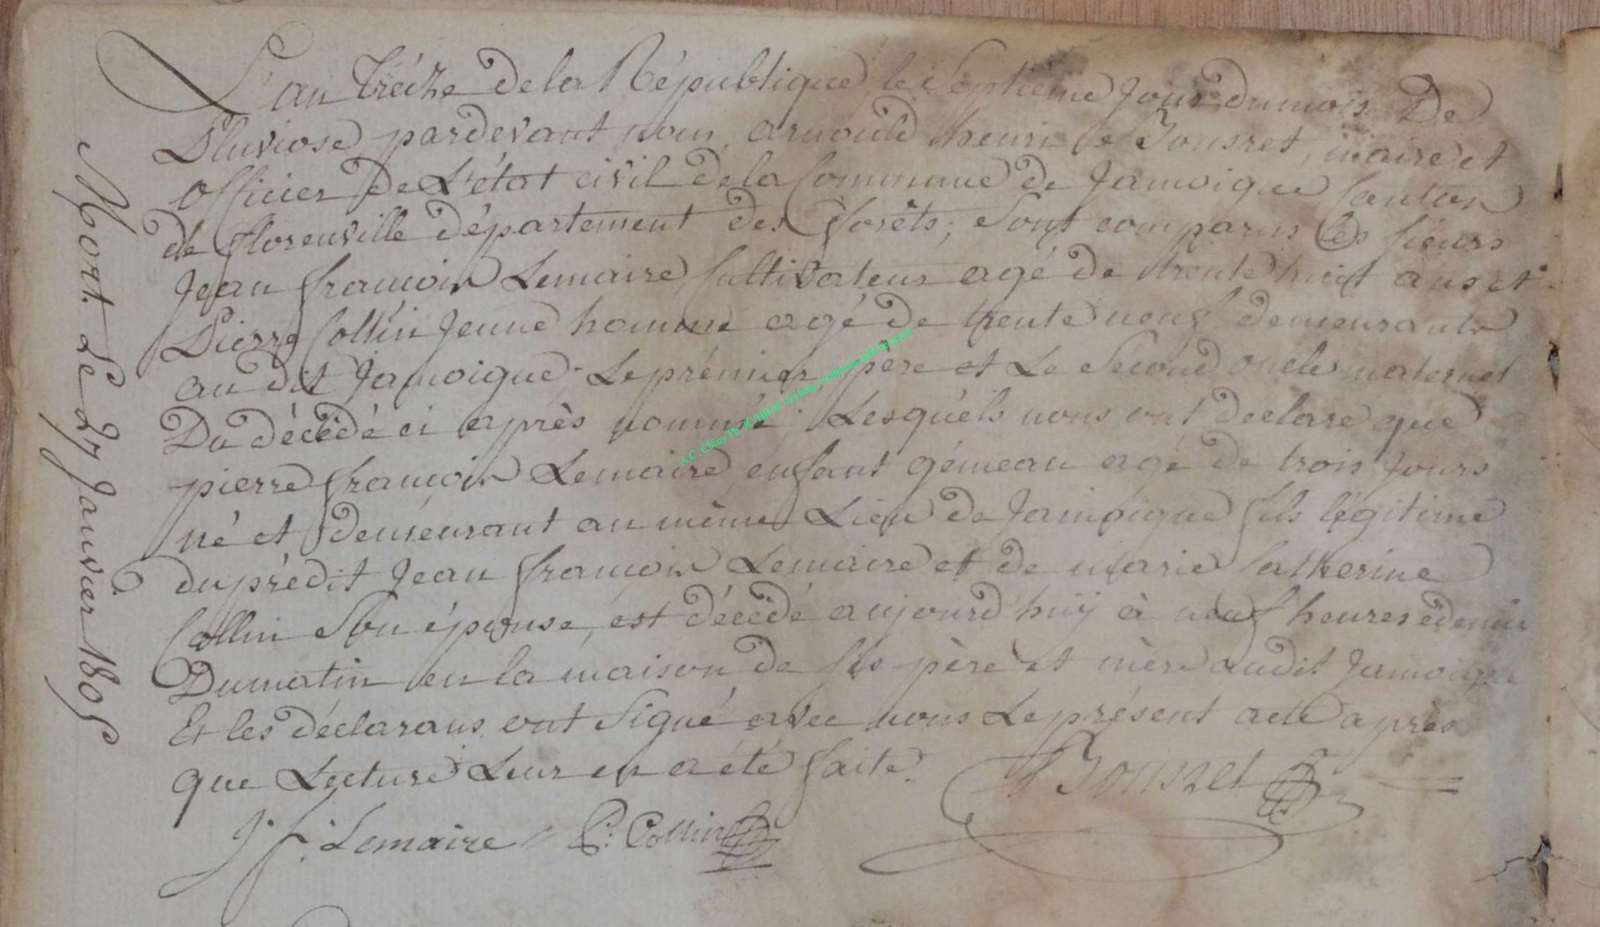 L'an treize de la République le Septième Jour du mois De
Pluviose pardevant nous, arnould henri le Bousret, maire et
officier De L'état civil De la Commune De Jamoigne Canton
de florenville département des forêts, Sont comparus les sieurs
Jean françois Lemaire, Cultivateur agé De trente huit ans et
Pierre Collin Jeune homme agé De trente neuf demeurants
au dit Jamoigne, Le prémier père et Le Second oncle maternel
Du décédé ci après nommé; Lesquels nous ont declare que
pierre françois Lemaire enfant gémeau agé De trois Jours
né et demeurant au même Lieu De Jamoigne fils légitime
du prédit Jean françois Lemaire et de marie Catherine
Collin Son épouse, est décédé aujourd'huÿ à neuf heures edemie
Dumatin en la maison De ses père et mère audit Jamoigne
Et les déclarans ont Signé avec nous Le présent acte après
que Lecture Leur en a été faite.
Bousret
J. f. Lemaire P. Collin
Mort. Le 27 Janvier 1805